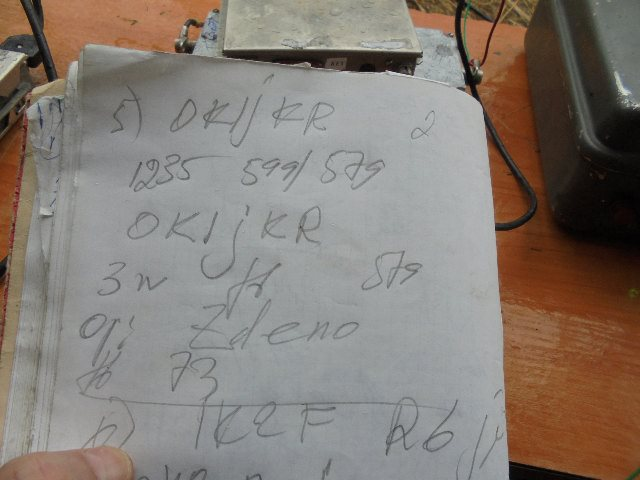 5) OK1jKR 2
1235 599/579
OK1jKR
3w 579
op: Zdeno
73
IK2F R6